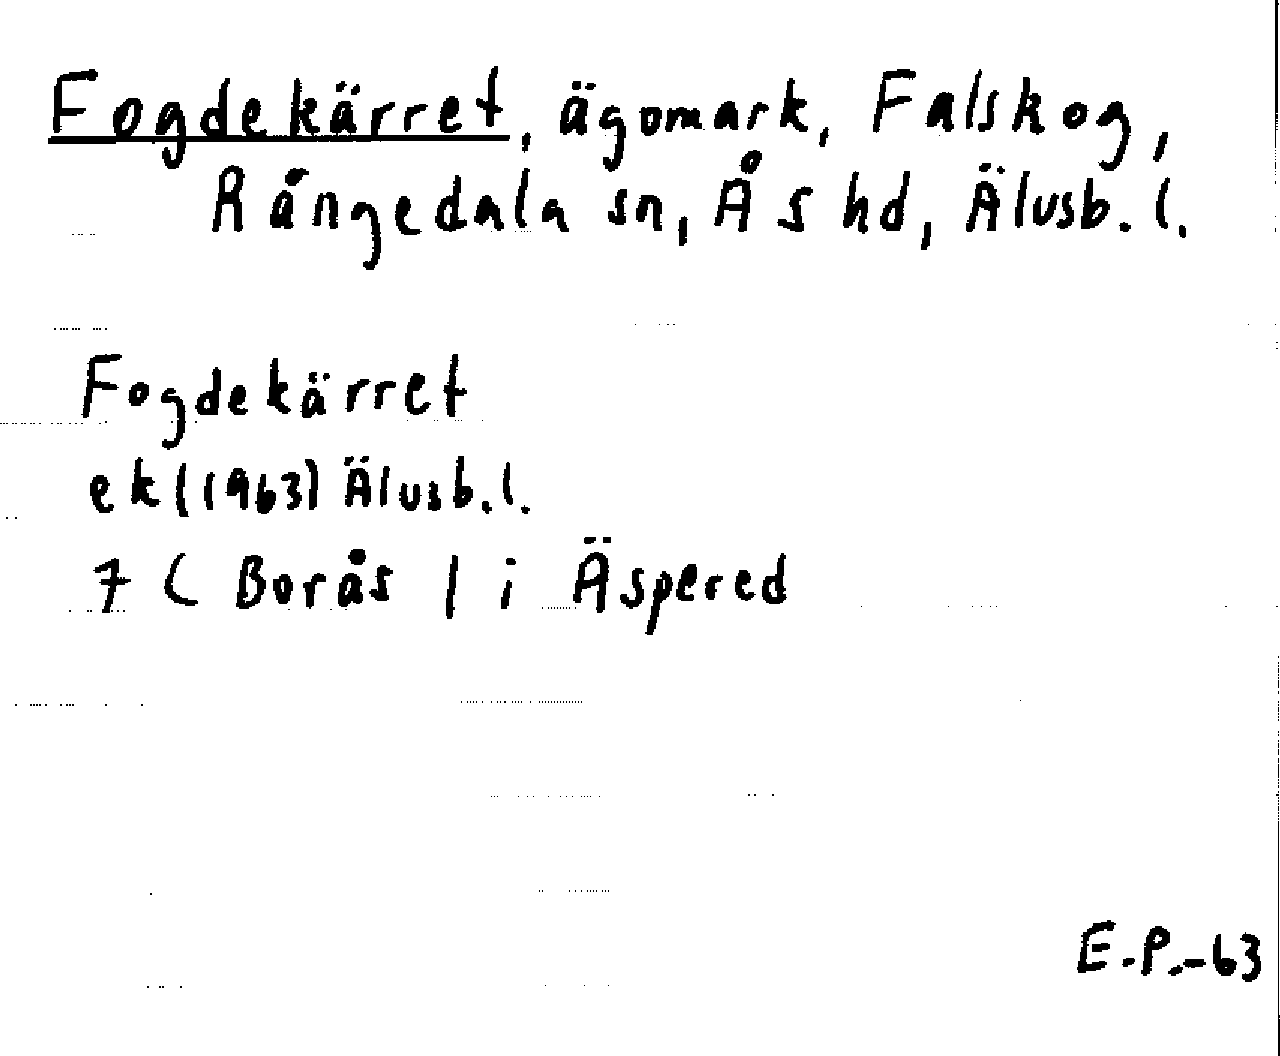 Fogdekärret, ägomark, Falskog,
Rångedala sn, Ås hd, Älvsb. l.
Fogdekärret
ek (1963) Älvsb. l.
7 C Borås | i Äspered
E.P.-63